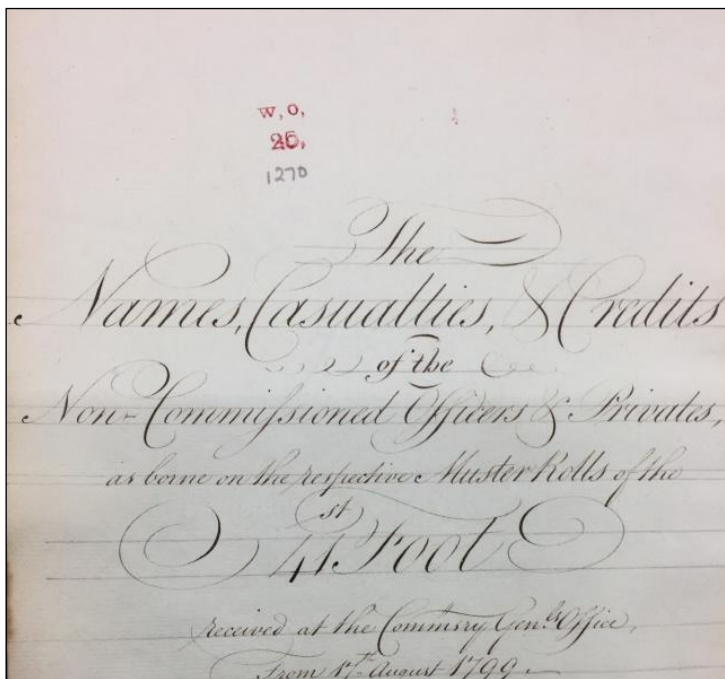 W, O,
25,
1270
The
Names, Casualties, & Credits
of the
Non-Commissioned Officers & Privates,
as borne on the respective Muster Rolls of the
41st Foot
received at the Commsry Genls Office,
From 17th August 1799